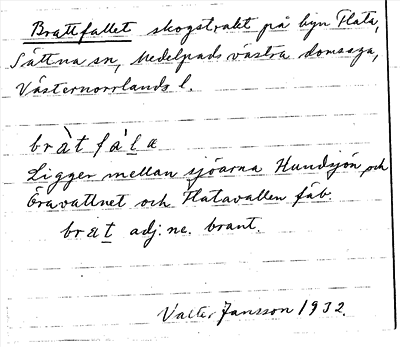 Brattfallet skogstrakt på byn Flata,
Sättna sn, Medelpads västra domsaga,
Västernorrlands l.
bràt fàlæ
Ligger mellan sjöarna Hundsjön och
Öravattnet och Flatavallen fäb.
bræt adj. ne. brant.
Valter Jansson 1932.